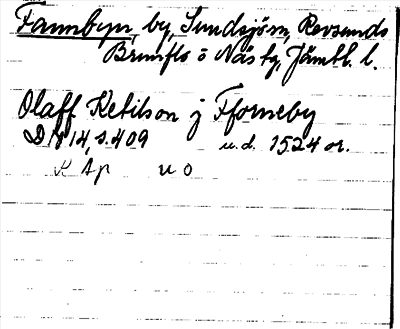 Fannbyn, by, Sundsjö sn, Revsunds
Brunflo o Näs tg, Jämtl. l.
Olaff Ketilson j Fforneby
DN 14, s. 409 u.d. 1524 or.
K Ap u o